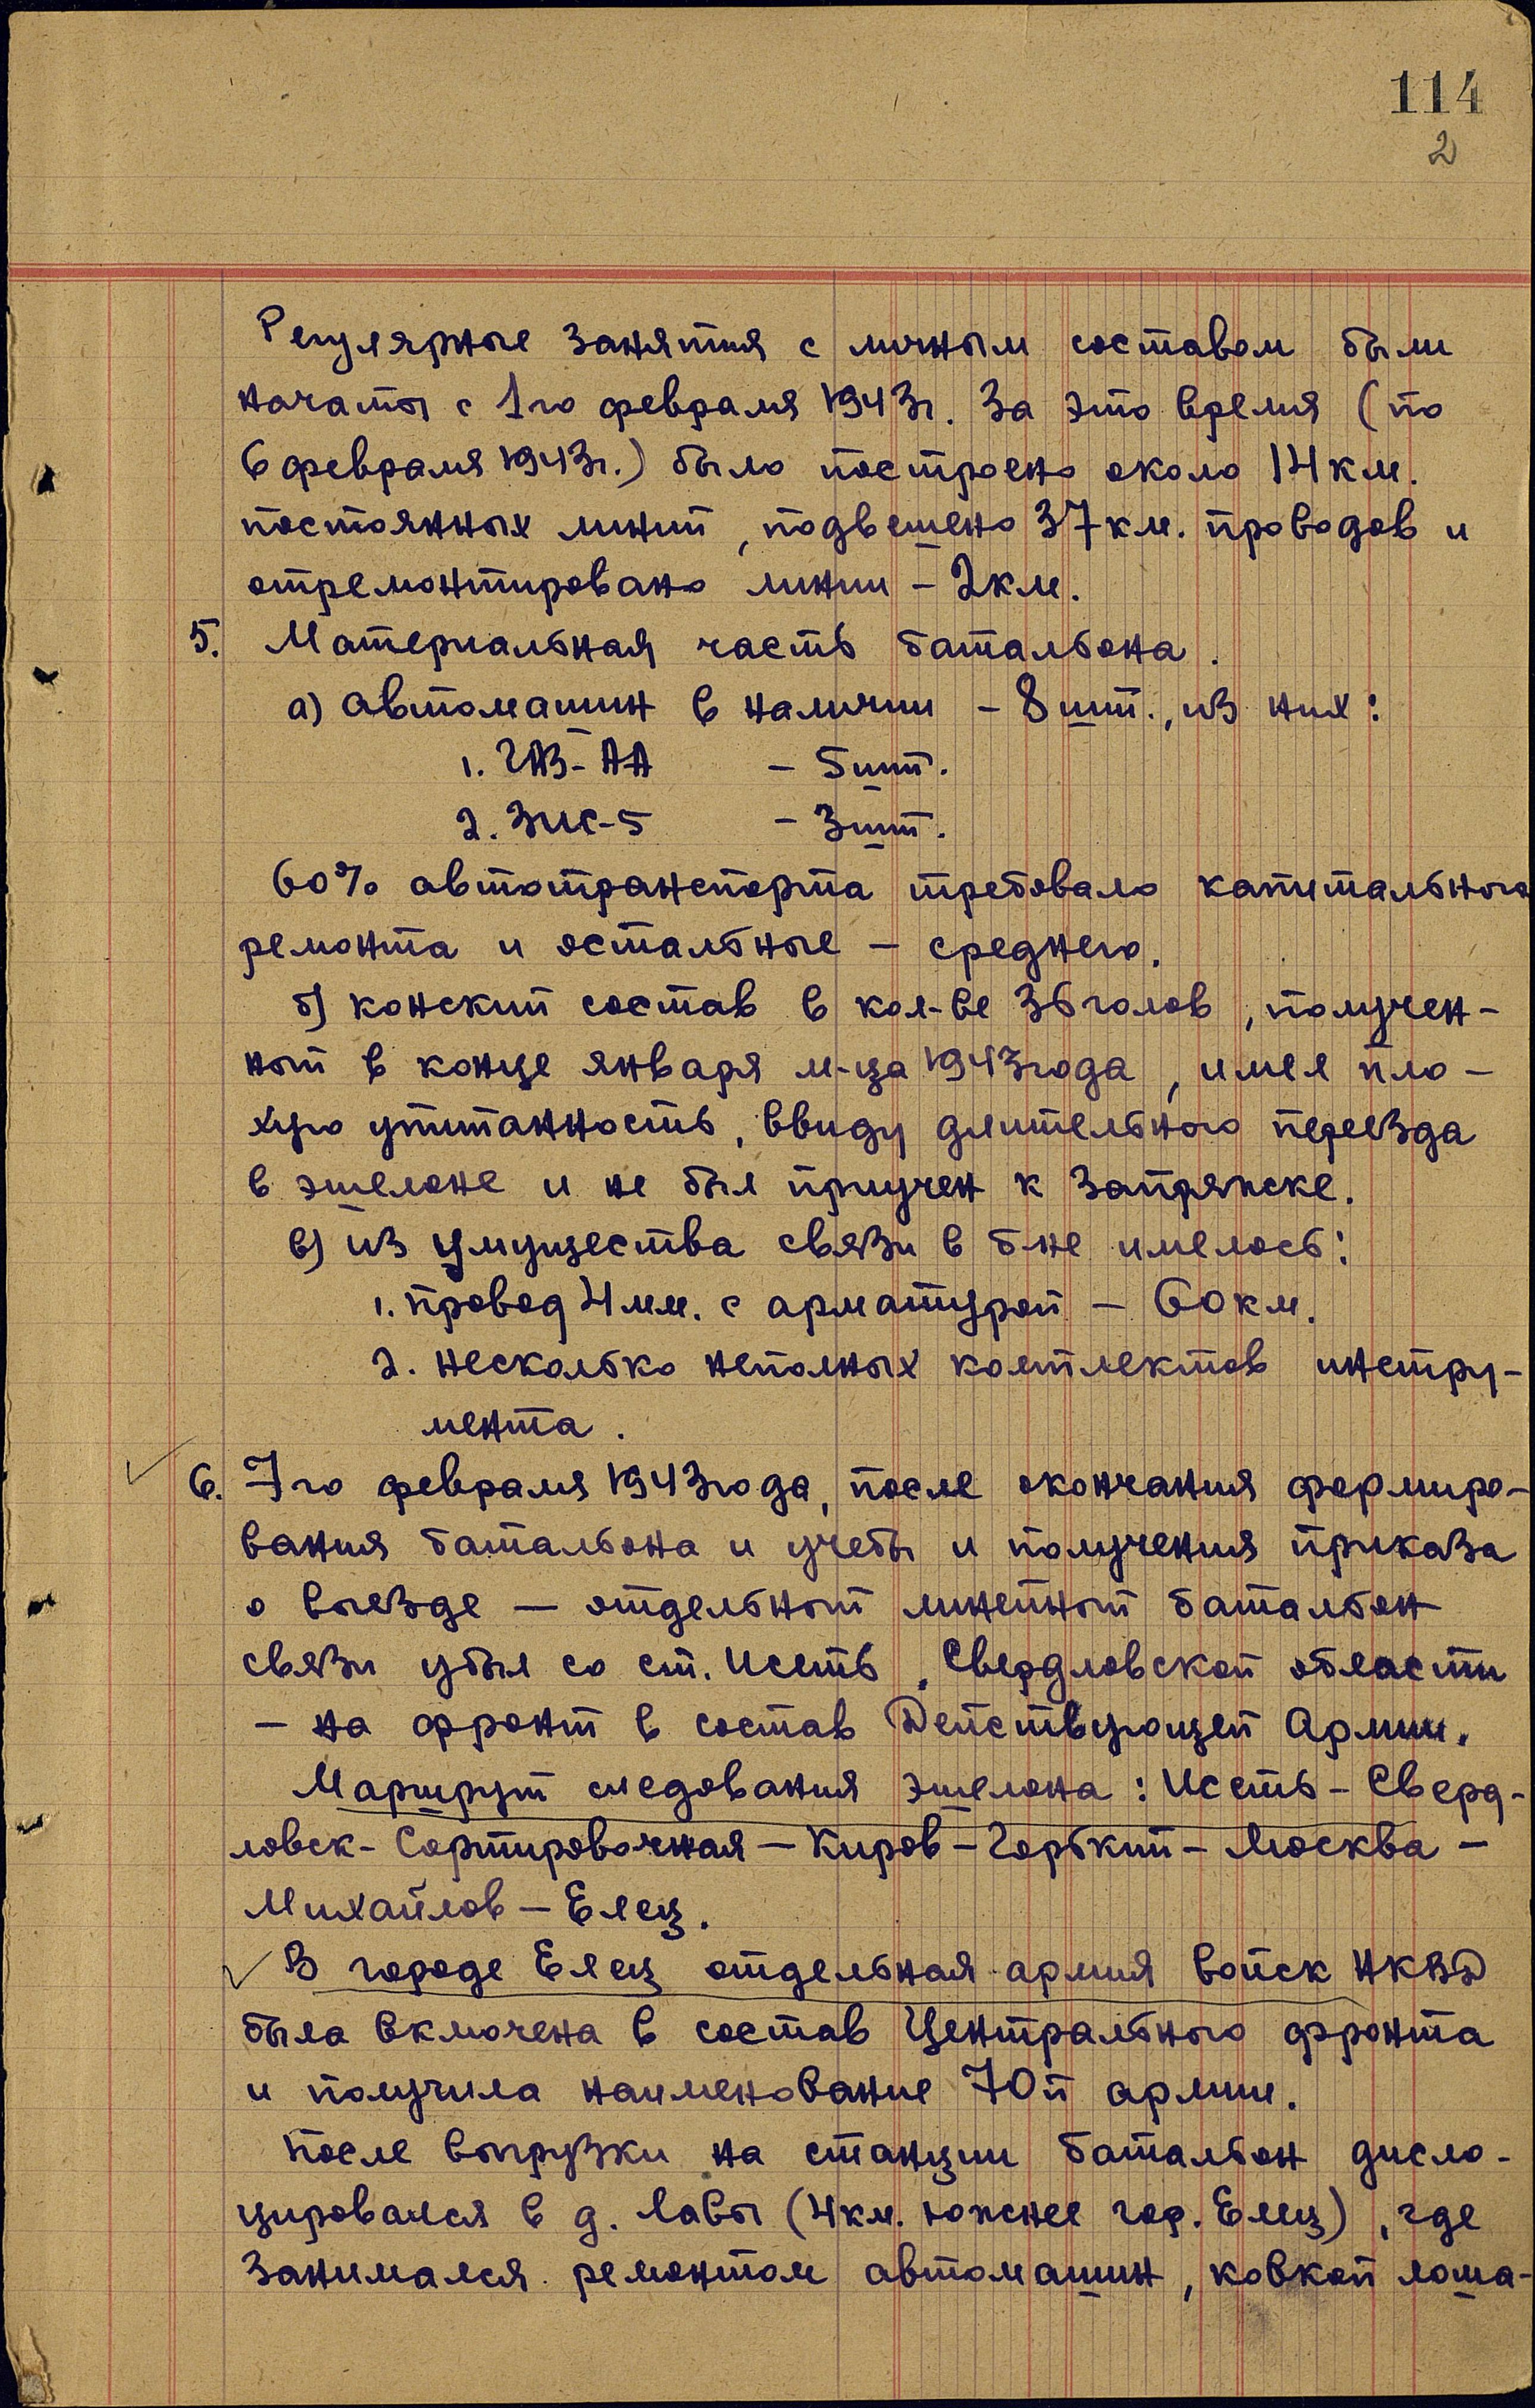 114
2
Регулярные занятия с личным составом были
начаты с 1го февраля 1943г. За это время (по
6 февраля 1943г.) было построено около 14 км.
постоянных линий, подвешено 37 км. проводов и
отремонтировано линии - 2 км.
5. Материальная часть батальона.
а) автомашин в наличии - 8 шт., из них:
1. ГАЗ-АА - 5 шт.
2. ЗИС-5 - 3 шт.
60% автотранспорта требовало капитального
ремонта и остальные - среднего.
б) конский состав в кол-ве 36 голов, получен-
ный в конце января м-ца 1943 года, имел пло-
хую упитанность, ввиду длительного переезда
в эшелоне и не был приучен к запряжке.
в) из имущества связи в б-не имелось:
1. провод 4 мм. с арматурой - 60 км.
2. несколько неполных комплектов инстру-
мента.
6. 7го февраля 1943 года, после окончания формиро-
вания батальона и учебы и получения приказа
о выезде - отдельный линейный батальон
связи убыл со ст. Исеть, Свердловской области
- на фронт в состав Действующей Армии.
Маршрут следования эшелона: Исеть - Сверд-
ловск - Сортировочная - Киров - Горький - Москва -
Михайлов - Елец.
В городе Елец отдельная армия войск НКВД
была включена в состав Центрального фронта
и получила наименование 70й армии.
После выгрузки на станции батальон дисло-
цировался в д. Лавы (4 км. южнее гор. Елец), где
занимался ремонтом автомашин, ковкой лоша-